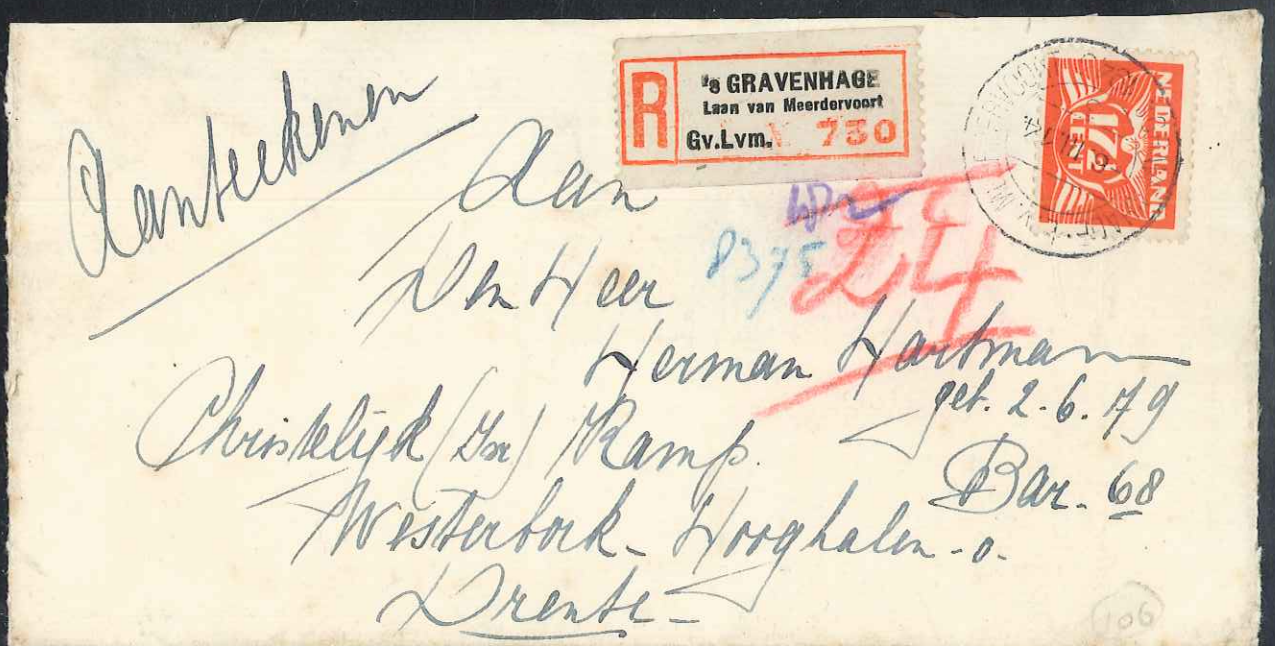 Aanteekenen
R
's GRAVENHAGE
Laan van Meerdervoort
Gv.Lvm. 730
NEDERLAND
17½
CENT
Aan
Den Heer
8375
24
Herman Hartman
geb. 2.6.79
Christelijk (Isr) Kamp.
Bar. 68
Westerbork - Hooghalen - o.
Drente -
106